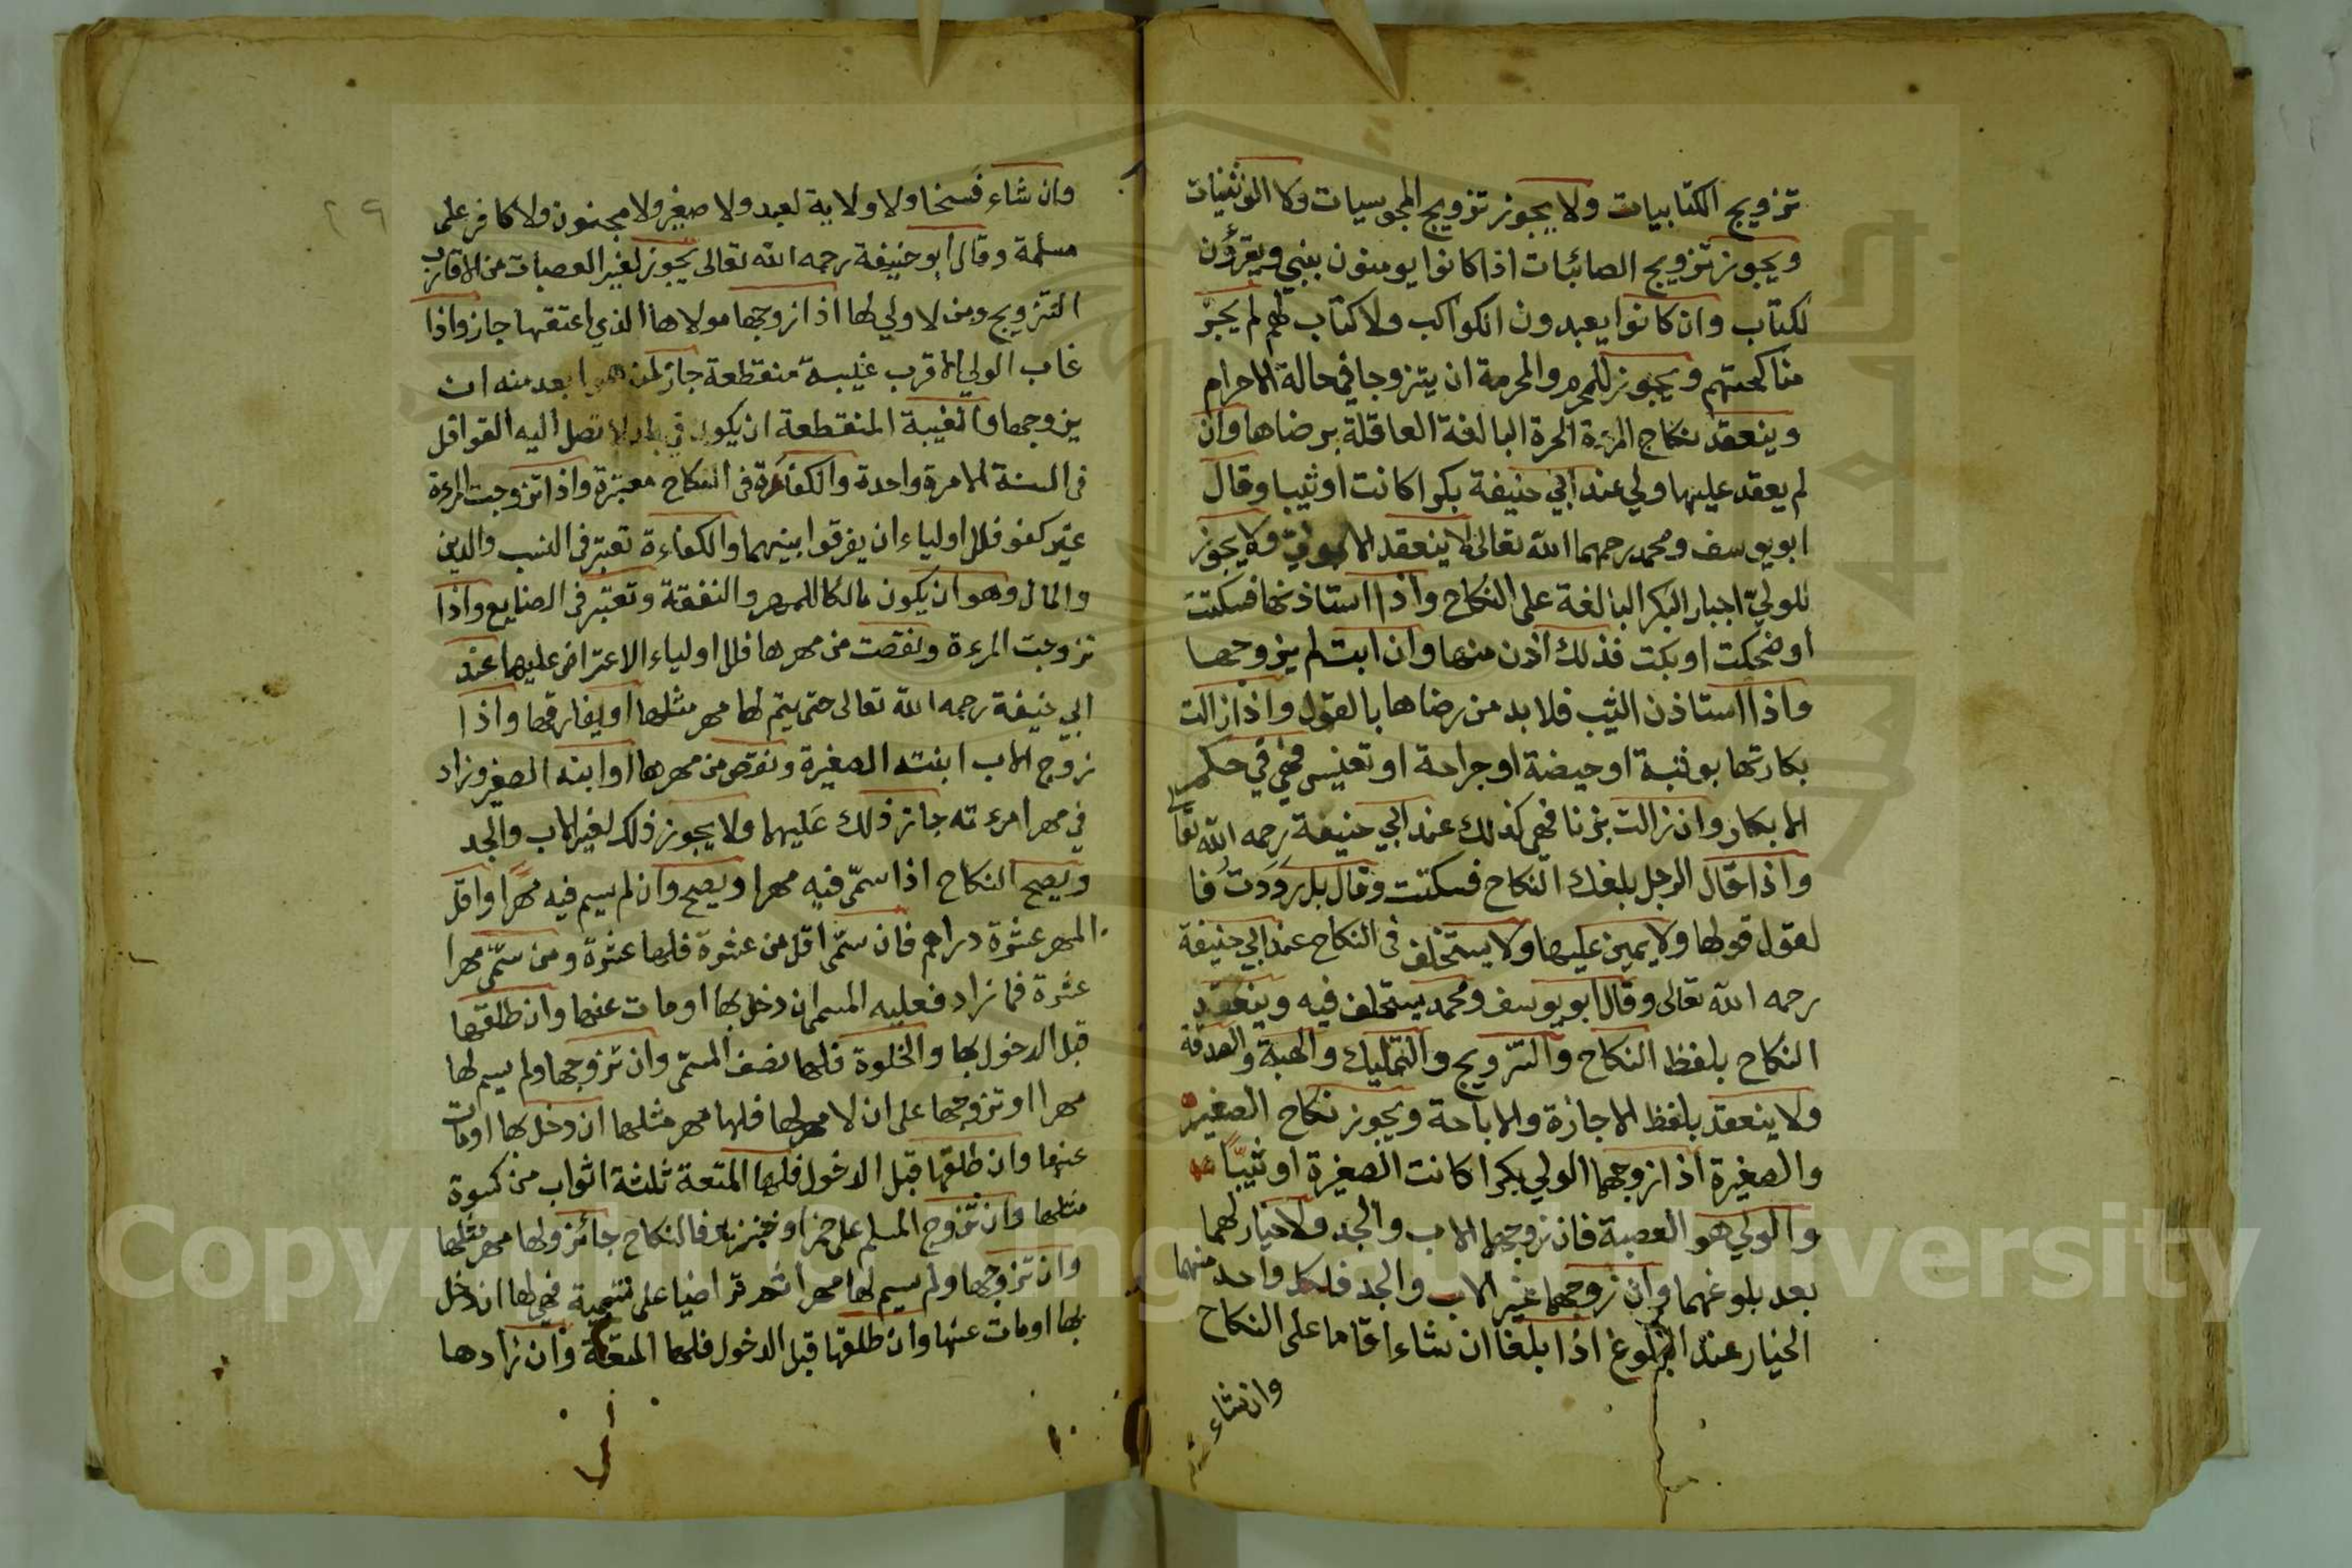 تزويج الكتابيات ولا يجوز تزويج المجوسيات ولا الوثنيات
ويجوز تزويج الصائبات اذا كانوا يومنون بنبي ويقرؤن
لكتاب وان كانوا يعبدون الكواكب ولا كتاب لهم لم يجز
مناكحتهم ويجوز للمحرم والمحرمة ان يتزوجا في حالة الاحرام
وينعقد نكاح المرءة الحرة البالغة العاقلة برضاها وان
لم يعقد عليها ولي عند ابي حنيفة بكرا كانت او ثيبا وقال
ابو يوسف ومحمد رحمهما الله تعالى لا ينعقد الا بولي ولا يجوز
للولي اجبار البكر البالغة على النكاح واذا استاذنها فسكتت
او ضحكت او بكت فذلك اذن منها وان ابت لم يزوجها
واذا استاذن الثيب فلا بد من رضاها بالقول واذا زالت
بكارتها بوثبة او حيضة او جراحة او تعنيس فهي في حكم
الابكار وان زالت بزنا فهي كذلك عند ابي حنيفة رحمه الله تعا
واذا قال الرجل بلغك النكاح فسكتت وقال بل رددت فا
لقول قولها ولا يمين عليها ولا يستحلف في النكاح عند ابي حنيفة
رحمه الله تعالى وقال ابو يوسف ومحمد يستحلف فيه وينعقد
النكاح بلفظ النكاح والتزويج والتمليك والهبة والصدقة
ولا ينعقد بلفظ الاجازة والاباحة ويجوز نكاح الصغير
والصغيرة اذا زوجهما الولي بكرا كانت الصغيرة او ثيبًا
والولي هو العصبة فان زوجهما الاب والجد ولا خيار لهما
بعد بلوغهما وان زوجهما غير الاب والجد فلكل واحد منهما
الخيار عند البلوغ اذا بلغا ان شاء اقاما على النكاح
وان شاء
٢٩
وان شاء فسخا ولا ولاية لعبد ولا صغير ولا مجنون ولا كافر على
مسلمة وقال ابو حنيفة رحمه الله تعالى يجوز لغير العصبات من الاقارب
التزويج ومن لا ولي لها اذا زوجها مولاها الذي اعتقها جاز واذا
غاب الولي الاقرب غيبة منقطعة جاز لمن هو ابعد منه ان
يزوجها والغيبة المنقطعة ان يكون في بلد لا تصل اليه القوافل
في السنة الا مرة واحدة والكفاءة في النكاح معتبرة واذا تزوجت المرءة
غير كفو فللاولياء ان يفرقوا بينهما والكفاءة تعتبر في النسب والدين
والمال وهو ان يكون مالكا للمهر والنفقة وتعتبر في الصنايع واذا
تزوجت المرءة ونقصت من مهرها فللاولياء الاعتراض عليها عند
ابي حنيفة رحمه الله تعالى حتى يتم لها مهر مثلها او يفارقها واذا
زوج الاب ابنته الصغيرة ونقص من مهرها او ابنه الصغير وزاد
في مهر امرءته جاز ذلك عليهما ولا يجوز ذلك لغير الاب والجد
ويصح النكاح اذا سمّى فيه مهرا ويصح وان لم يسم فيه مهرًا واقل
المهر عشرة دراهم فان سمّى اقل من عشرة فلها عشرة ومن سمّى مهرا
عشرة فما زاد فعليه المسمى ان دخل بها او مات عنها وان طلقها
قبل الدخول بها والخلوة فلها نصف المسمّى وان تزوجها ولم يسم لها
مهرا او تزوجها على ان لا مهر لها فلها مهر مثلها ان دخل بها او مات
عنها وان طلقها قبل الدخول فلها المتعة ثلثة اثواب من كسوة
مثلها وان تزوج المسلم على خمر او خنزير فالنكاح جائز ولها مهر مثلها
وان تزوجها ولم يسم لها مهرا ثم تراضيا على تسمية فهي لها ان دخل
بها او مات عنها وان طلقها قبل الدخول فلها المتعة وان زادها
Copyright © King Saud University